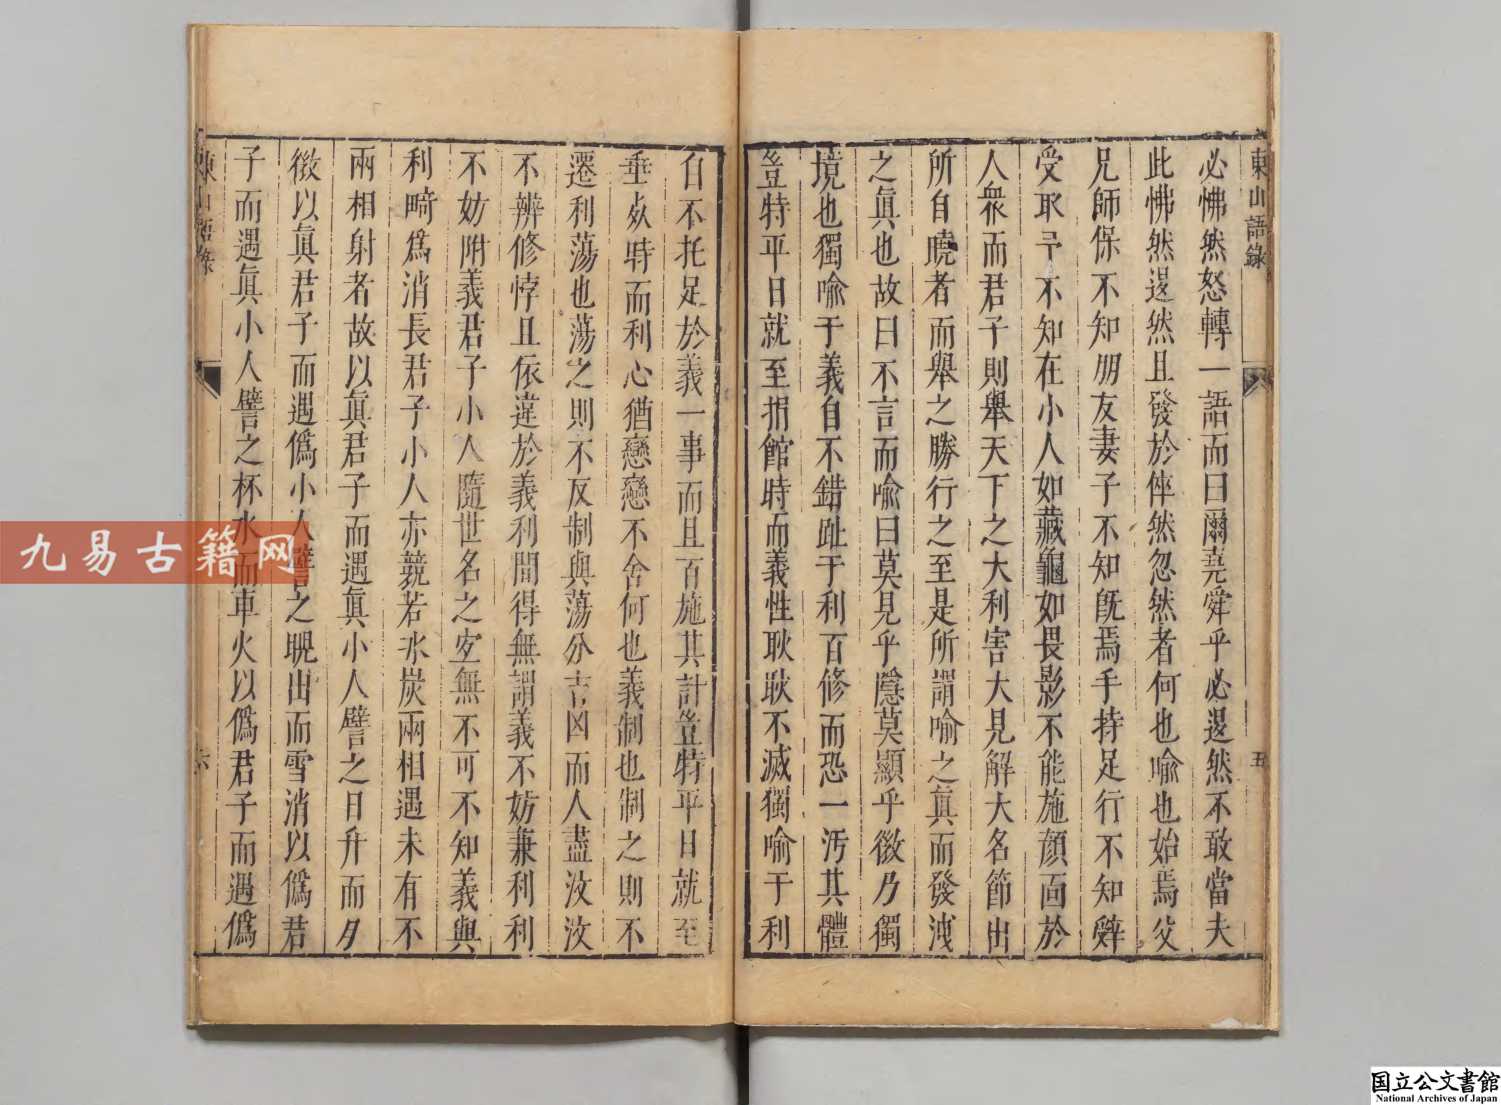 東山語錄
五
必怫然怒轉一語而曰爾堯舜乎必逡然不敢當夫
此怫然逡然且發於倅然忽然者何也喻也始焉父
兄師保不知朋友妻子不知既焉手持足行不知辤
受取予不知在小人如藏龜如畏影不能施顏面於
人衆而君子則舉天下之大利害大見解大名節出
所自曉者而舉之勝行之至是所謂喻之眞而發洩
之眞也故曰不言而喻曰莫見乎隱莫顯乎微乃獨
境也獨喻于義自不錯趾于利百修而恐一汚其體
豈特平日就至捐館時而義性耿耿不滅獨喻于利
自不托足於義一事而且百施其計豈特平日就至
垂死時而利心猶戀戀不舍何也義制也制之則不
遷利蕩也蕩之則不反制與蕩分吉凶而人盡汝汝
不辨修悖且依違於義利間得無謂義不妨兼利利
不妨附義君子小人隨世名之安無不可不知義與
利畸爲消長君子小人亦競若氷炭兩相遇未有不
兩相射者故以眞君子而遇眞小人譬之日升而夕
微以眞君子而遇僞小人譬之晛出而雪消以僞君
子而遇眞小人譬之杯水而車火以僞君子而遇僞
東山語錄
六
九易古籍网
国立公文書館
National Archives of Japan